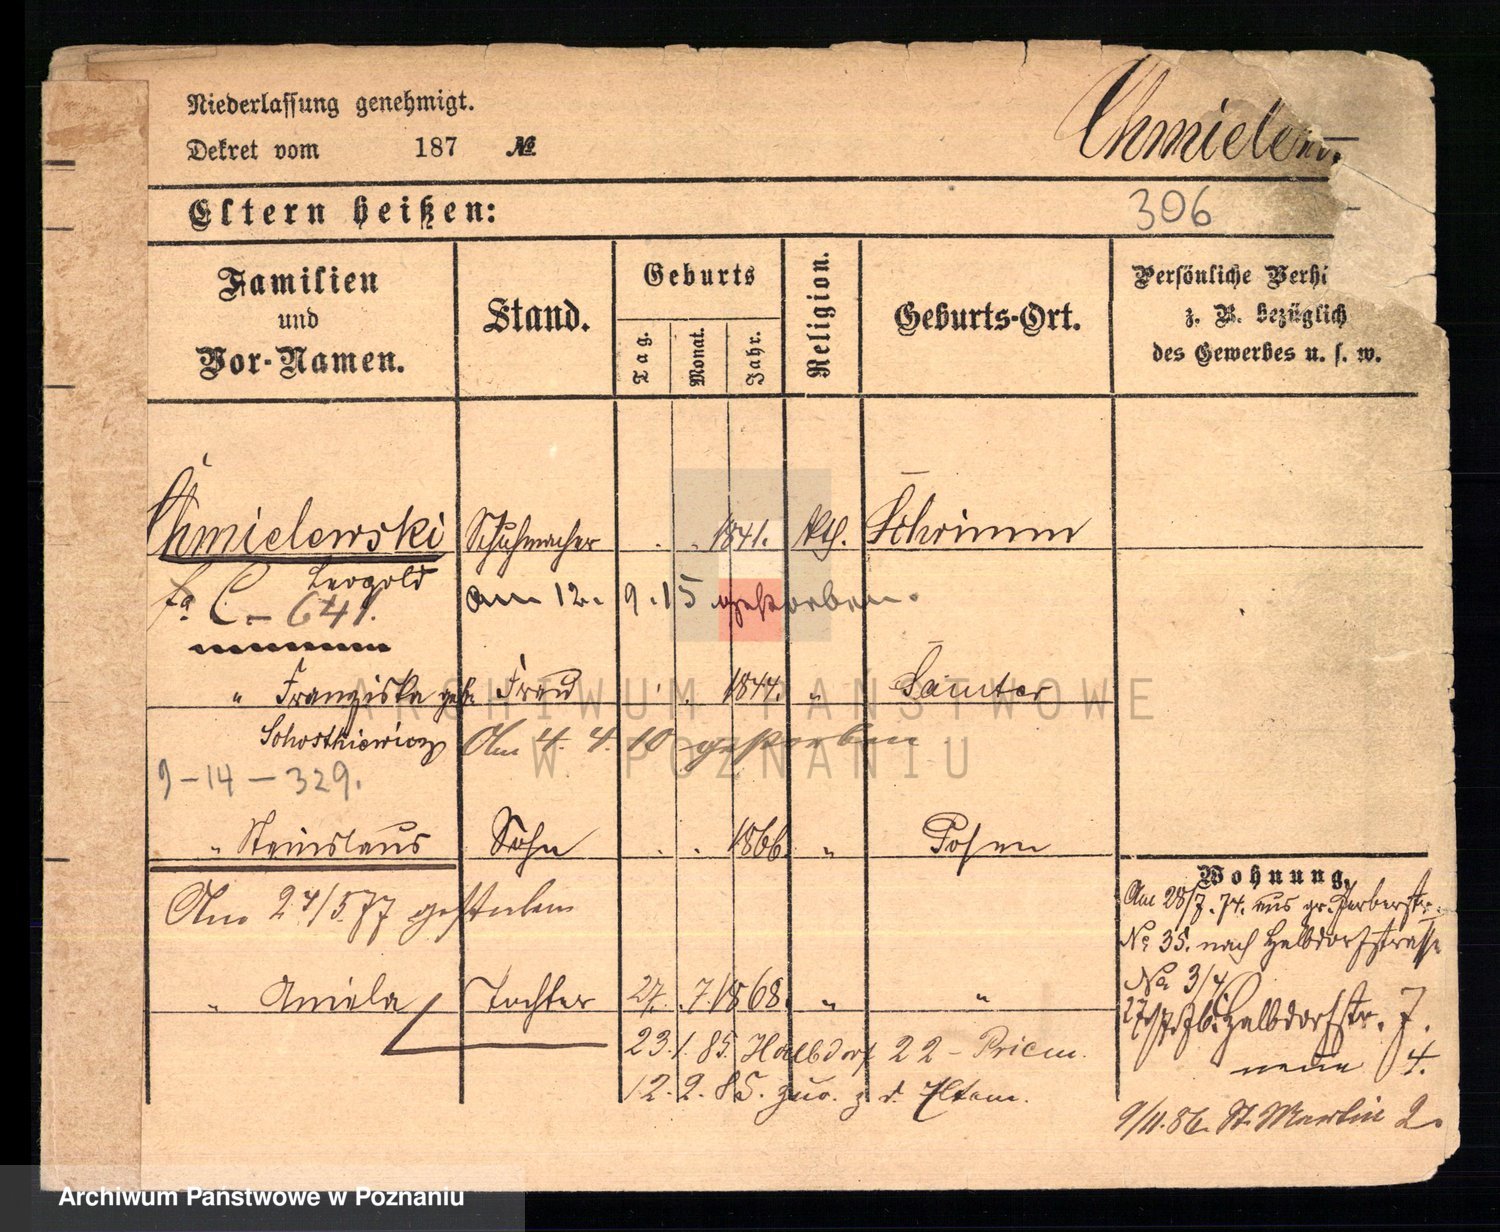 Niederlassung genehmigt.
Dekret vom 187 №
Chmielew.
Eltern heißen:
306
Familien und Vor-Namen.
Stand.
Geburts
Tag.
Monat.
Jahr.
Religion.
Geburts-Ort.
Persönliche Verhi
z. B. bezüglich
des Gewerbes u. s. w.
Chmielewski Schuhmacher . . 1841. kth. Schrimm
Leopold
fa. C. – 641. am 12. 9. 15 gestorben.
" Franziska geb. Frau . . 1844. " Samter
Schostkiewicz Am 4. 4. 10 gestorben
9–14–329.
" Stanislaus Sohn . . 1866. " Posen
Am 24/5.77 gestorben
" Aniela Tochter 27. 7. 1868. " "
23.1.85. Halbdorf 22 – Priem.
12.2.85. zur. z d. Eltern.
Wohnung.
Am 28/7.74. aus gr. Gerberstr.
No 35. nach Halbdorfstrasse
No 3/4
Halbdorfstr. 7.
neue 4.
9/11.86. St. Martin 2.
ARCHIWUM PAŃSTWOWE
W POZNANIU
Archiwum Państwowe w Poznaniu